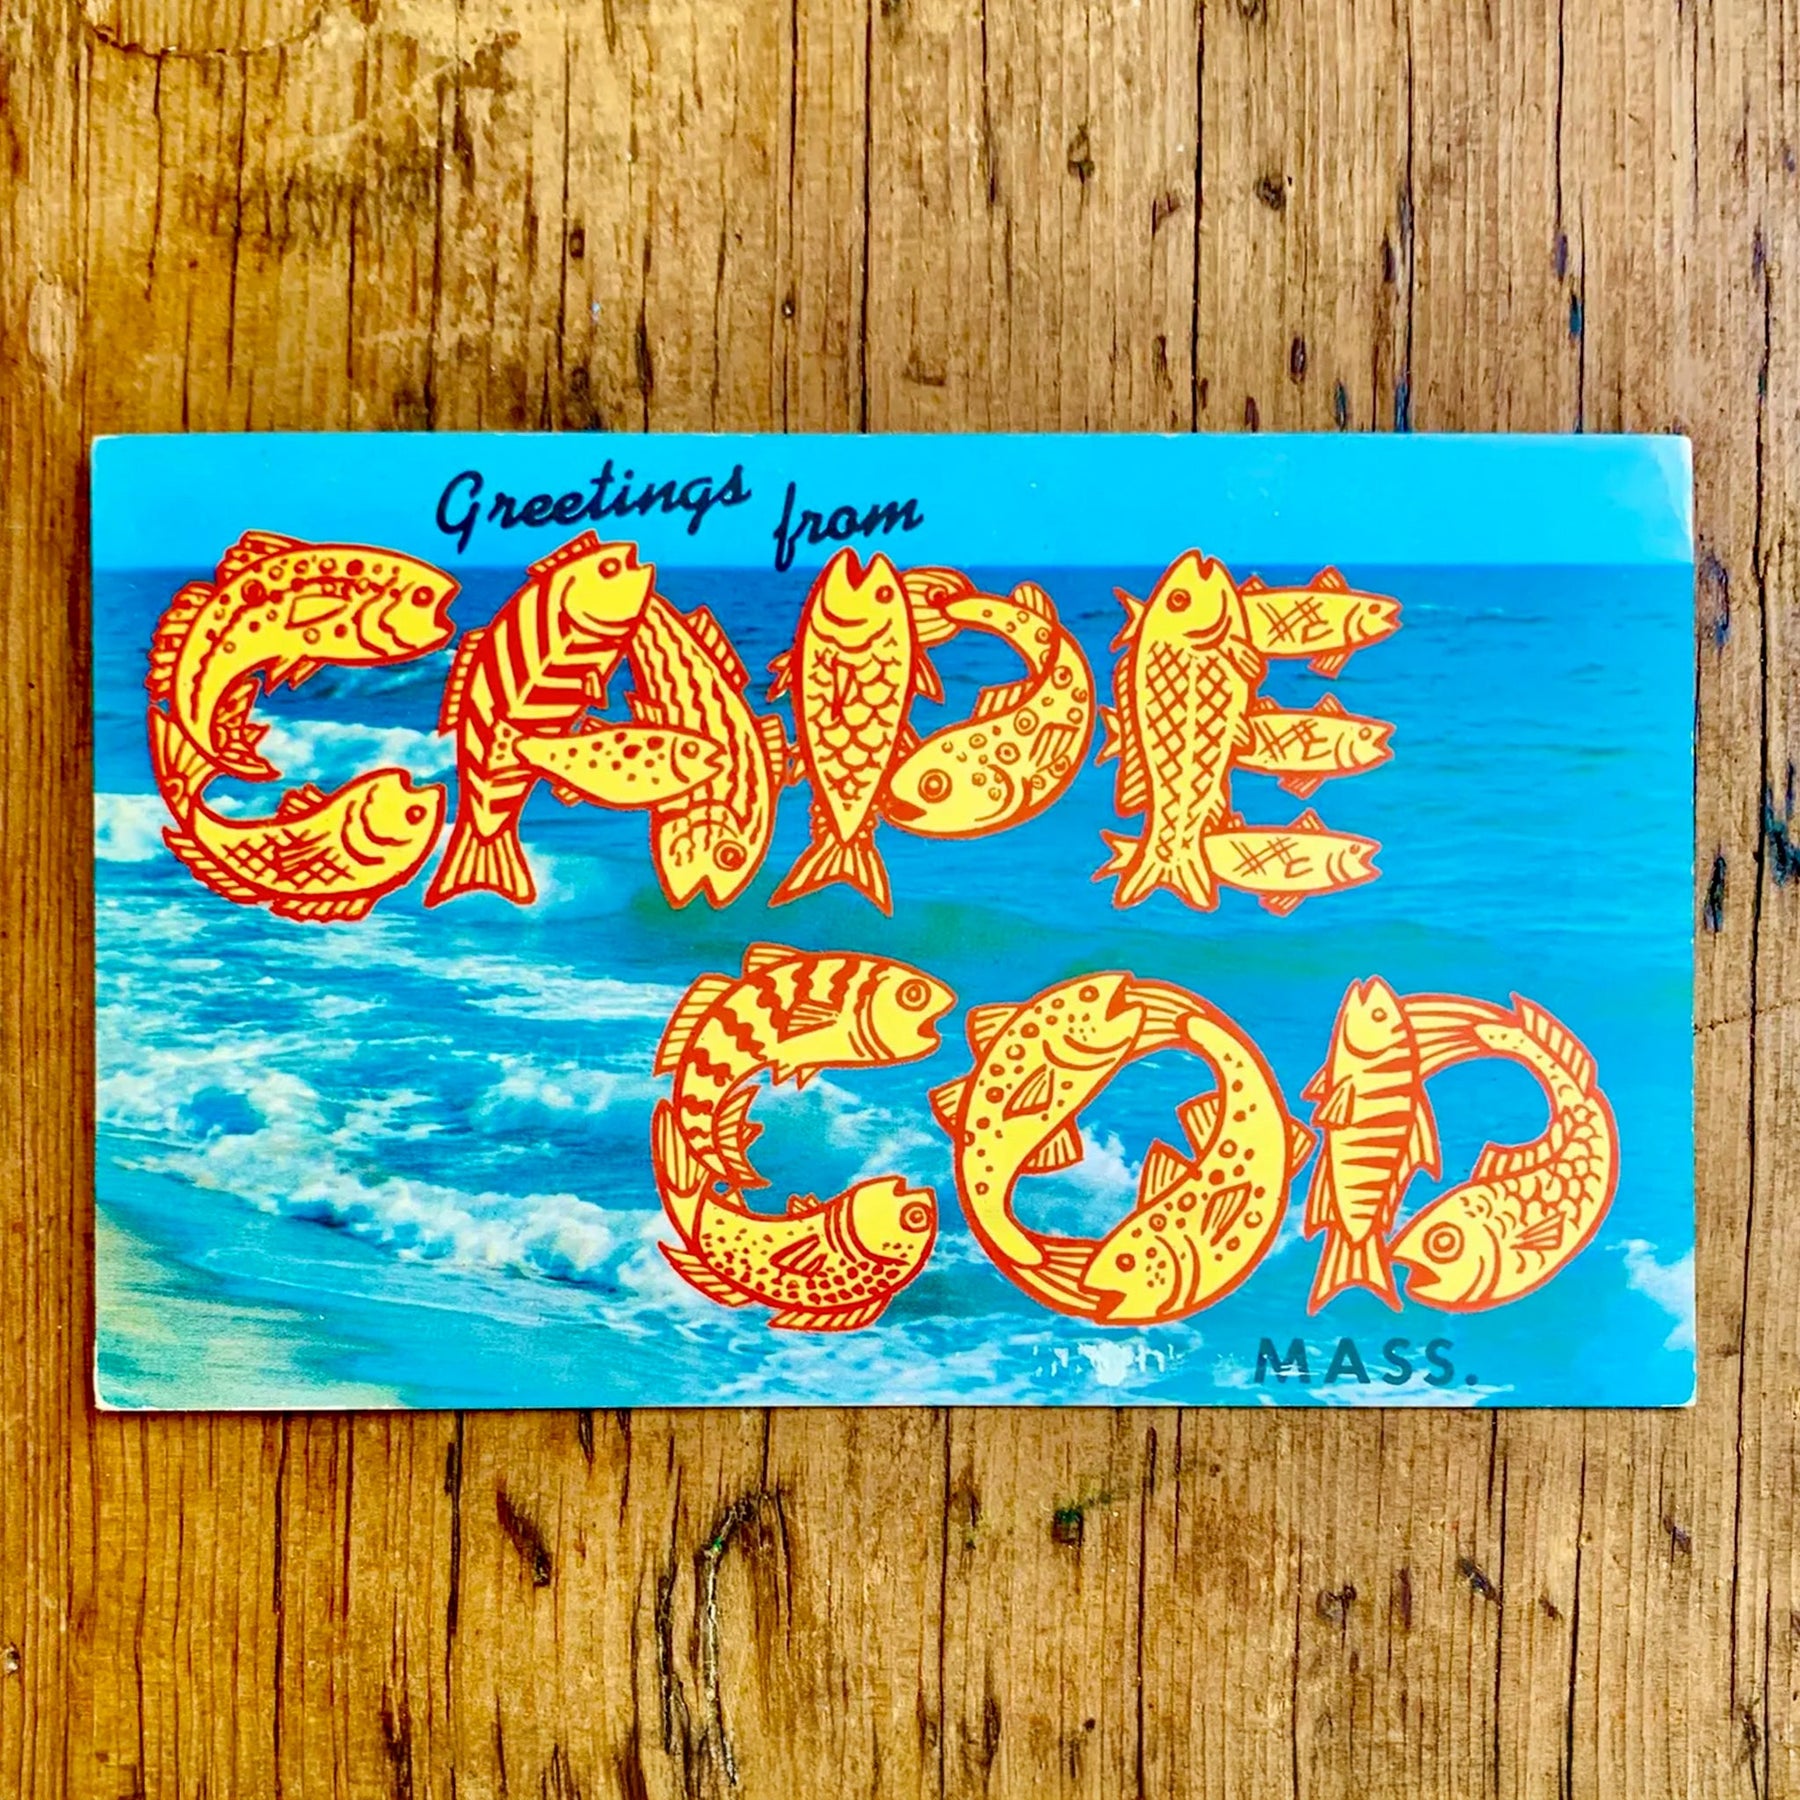 Greetings from
CAPE
COD
MASS.